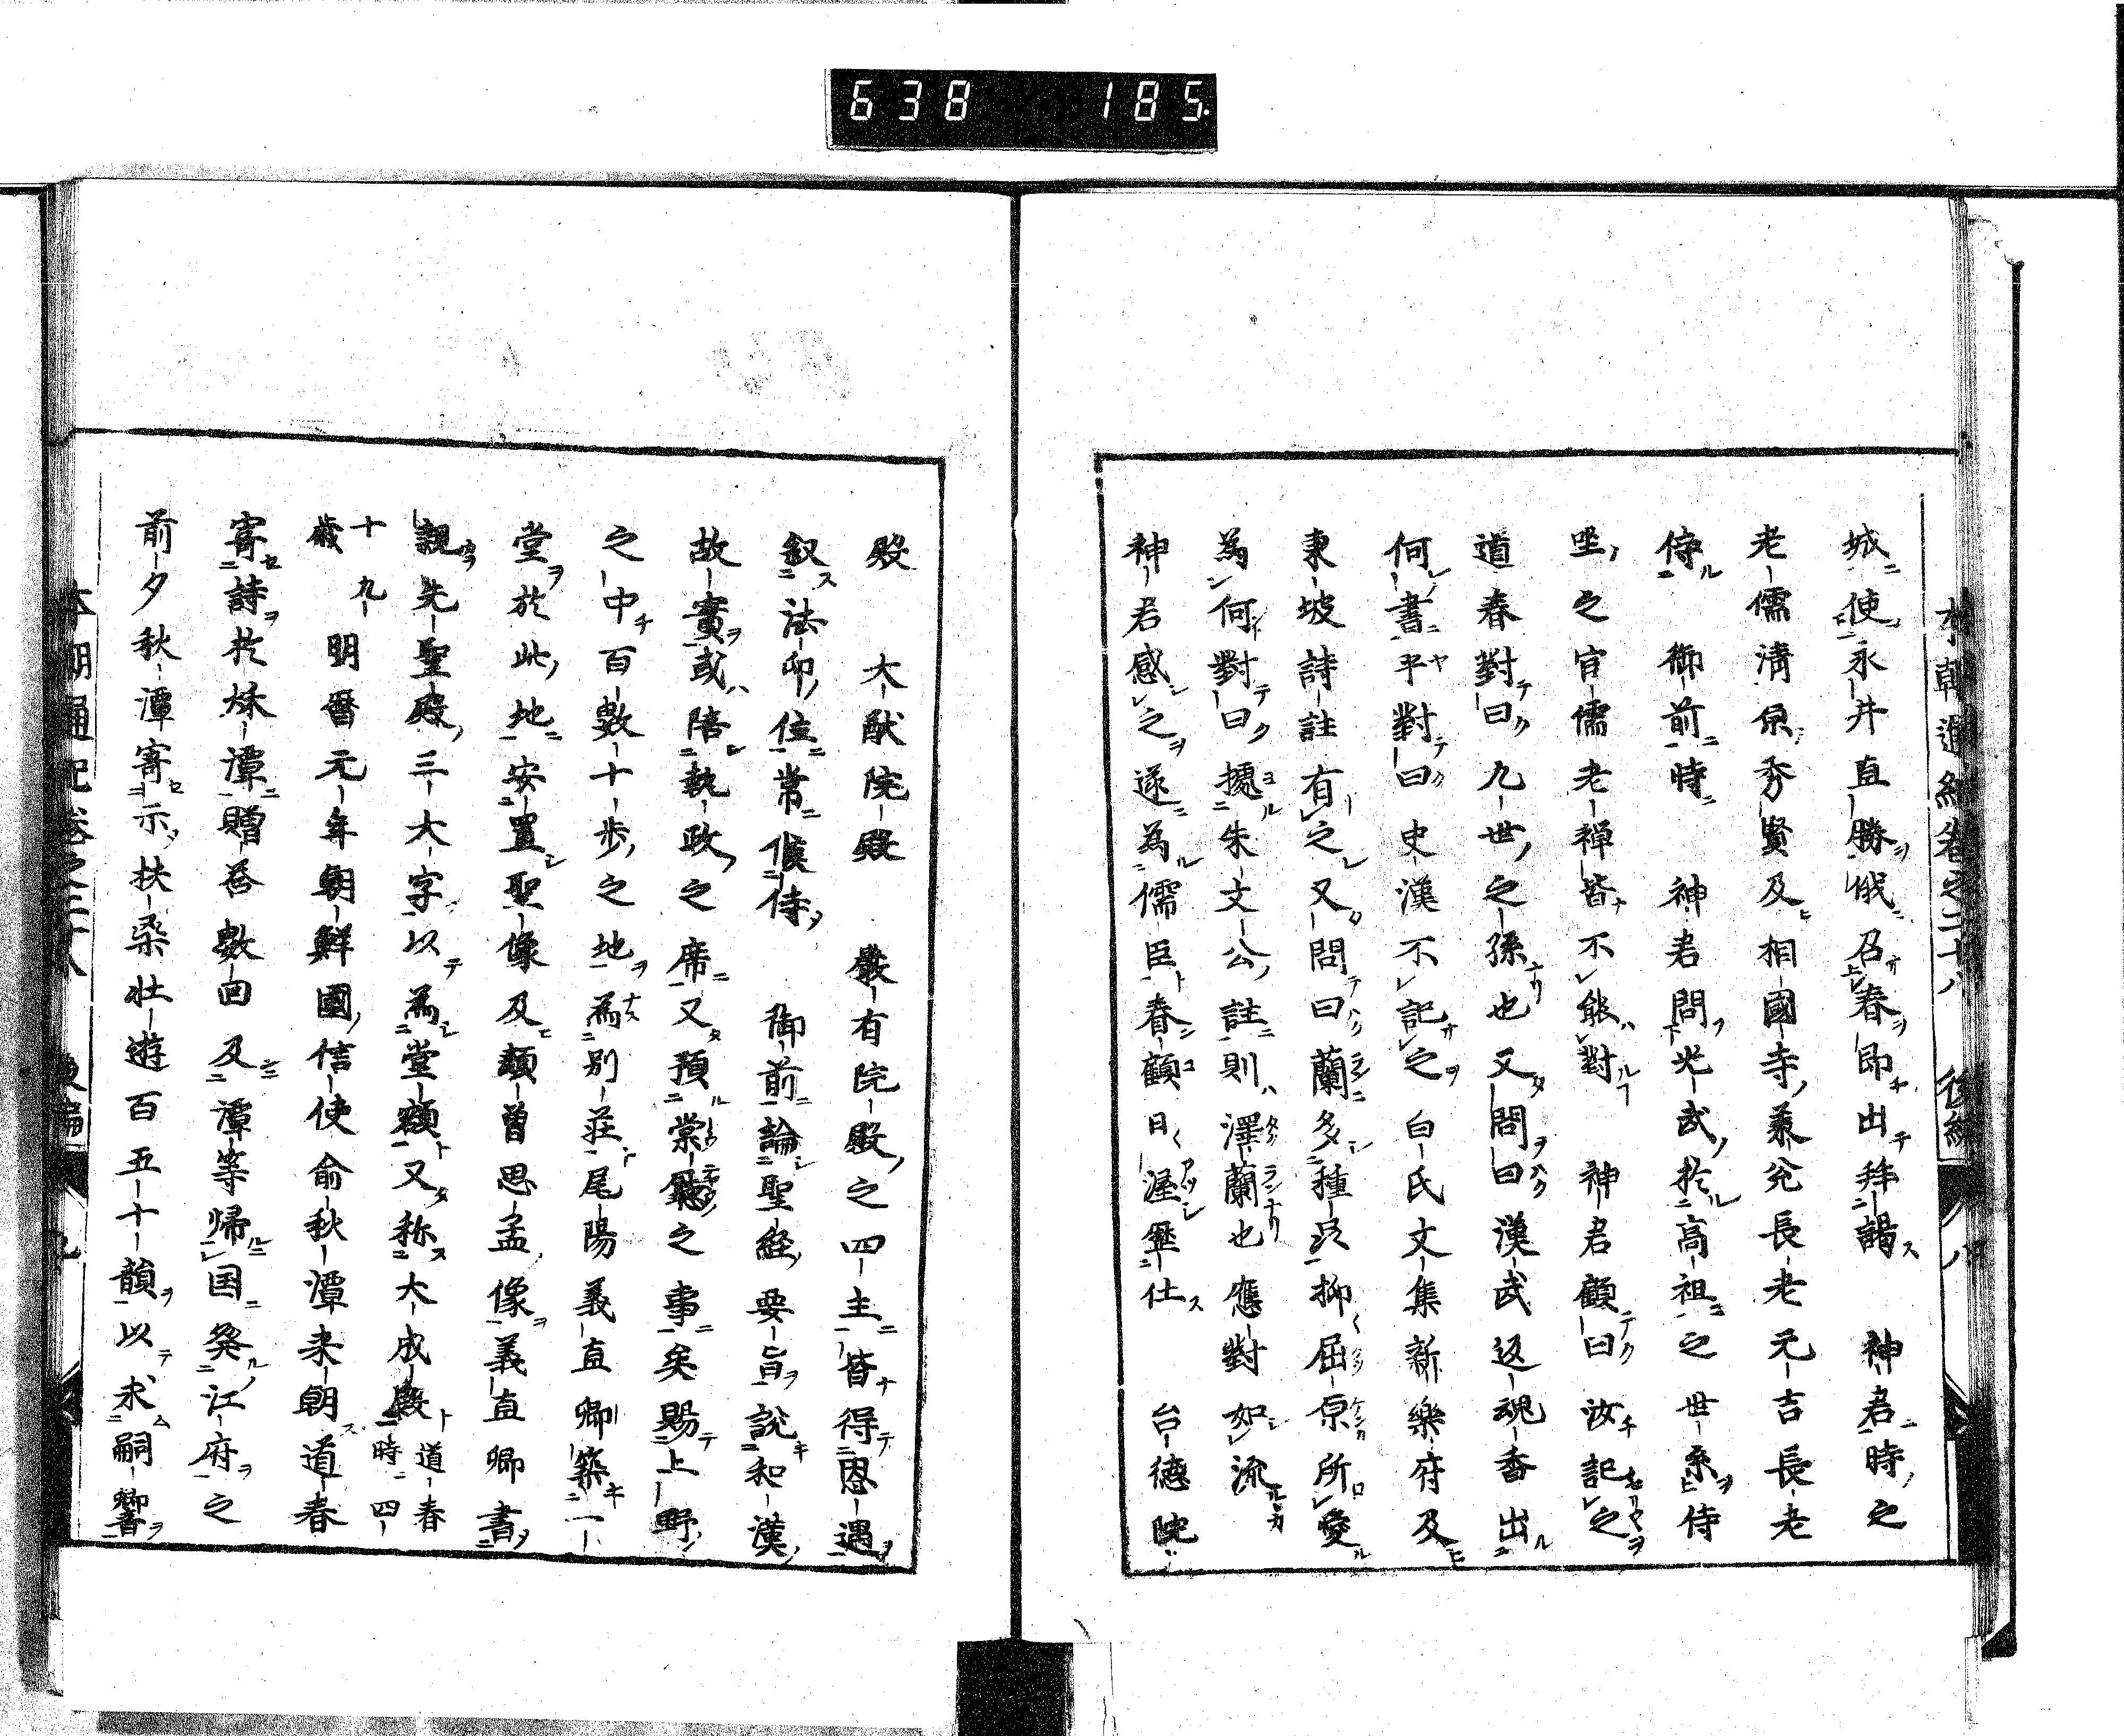 638 185
城使永井直勝俄召春即出拜謁 神君時之
老儒清原秀賢及相國寺兼兊長老元吉長老
侍 御前時 神君問光武於高祖之世系侍
坐之官儒老禅皆不能對 神君顧曰汝記之
道春對曰九世之孫也又問曰漢武返魂香出
何書乎對曰史漢不記之白氏文集新樂府及
東坡詩註有之又問曰蘭多種品抑屈原所愛
為何對曰據朱文公註則澤蘭也應對如流
神君感之遂為儒臣春顧日渥歷仕 台德院
殿 大猷院殿 嚴有院殿之四主皆得恩遇
叙法印位常候侍 御前論聖經要旨說和漢
故實或陪執政之席又預棠聽之事矣賜上野
之中百數十步之地為别莊尾陽義直卿築一
堂於此地安置聖像及顏曾思孟像義直卿書
親先聖殿三大字以為堂額又称大成殿道春時四
十九歲 明曆元年朝鮮國信使俞秋潭来朝道春
寄詩於秋潭贈荅數回及潭等帰国発江府之
前夕秋潭寄示扶桒壮遊百五十韻以求嗣響